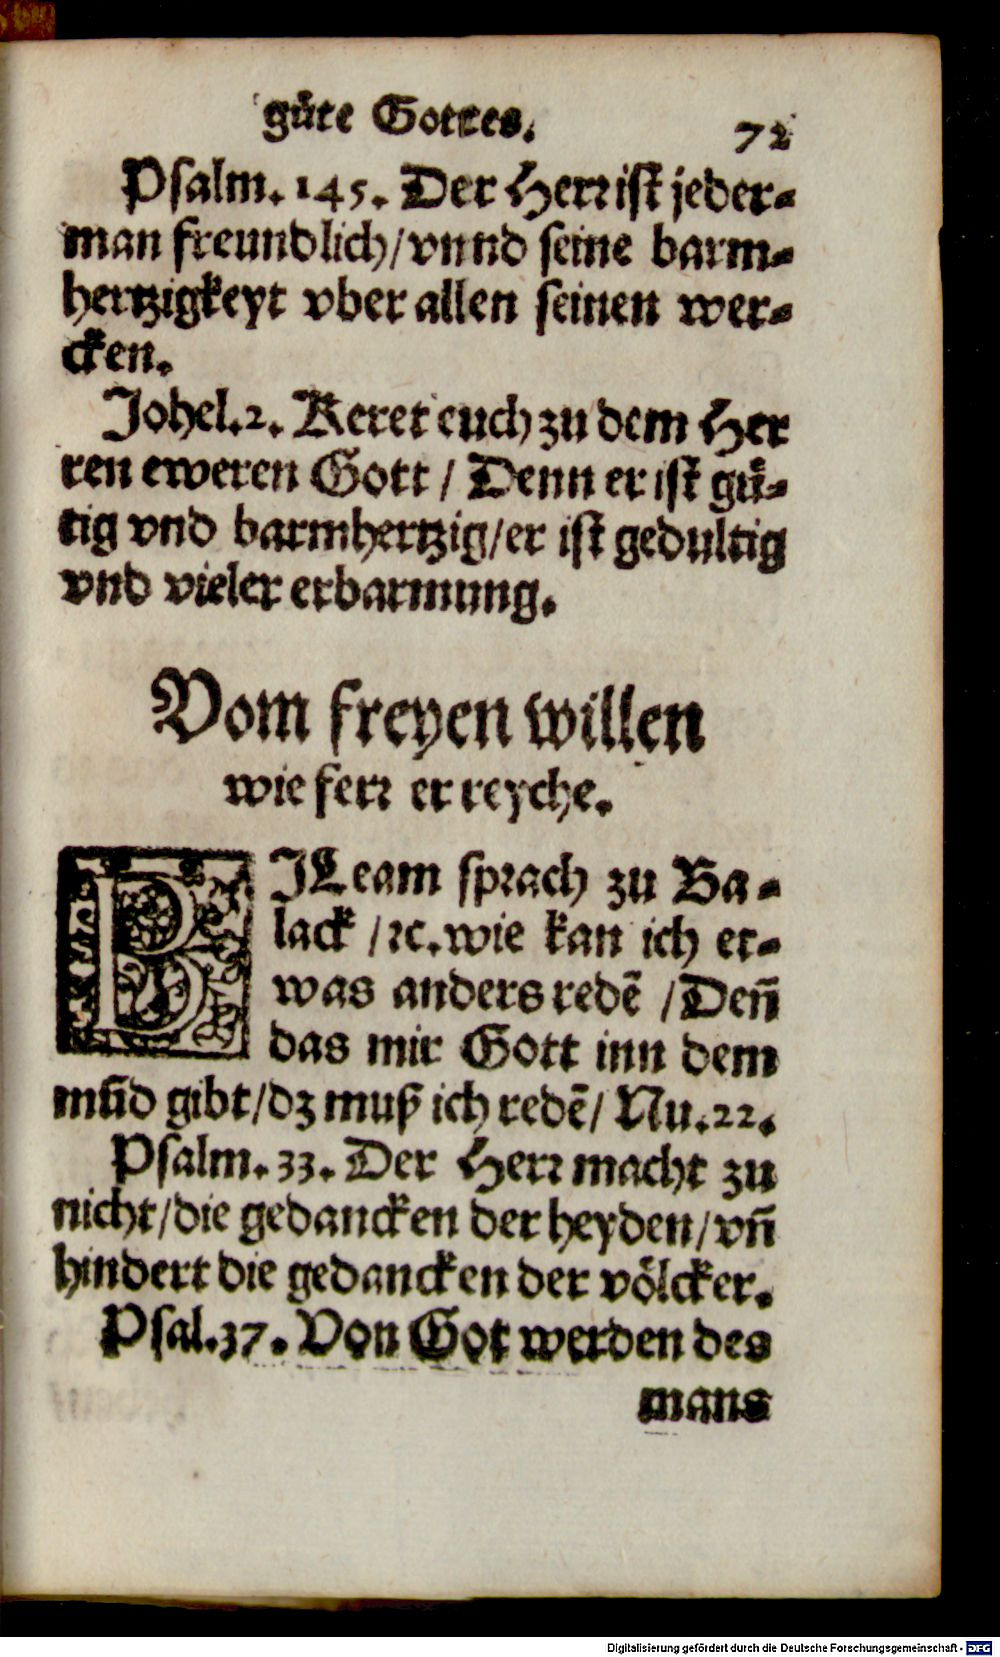 guͤte Gottes.
72
Psalm. 145. Der Herr ist jeder-
man freundlich/vnnd seine barm-
hertzigkeyt vber allen seinen wer-
cken.
Johel. 2. Keret euch zu dem Her
ren eweren Gott / Denn er ist guͤ-
tig vnd barmhertzig/er ist gedultig
vnd vieler erbarmung.
Vom freyen willen
wie ferr er reyche.
BJLeam sprach zu Ba-
lack /ꝛc. wie kan ich et-
was anders redẽ /Deñ
das mir Gott inn dem
mūd gibt/dz muß ich redẽ/ Nu. 22.
Psalm. 33. Der Herr macht zu
nicht/die gedancken der heyden/vñ
hindert die gedancken der voͤlcker.
Psal. 37. Von Got werden des
mans
Digitalisierung gefördert durch die Deutsche Forschungsgemeinschaft - DFG